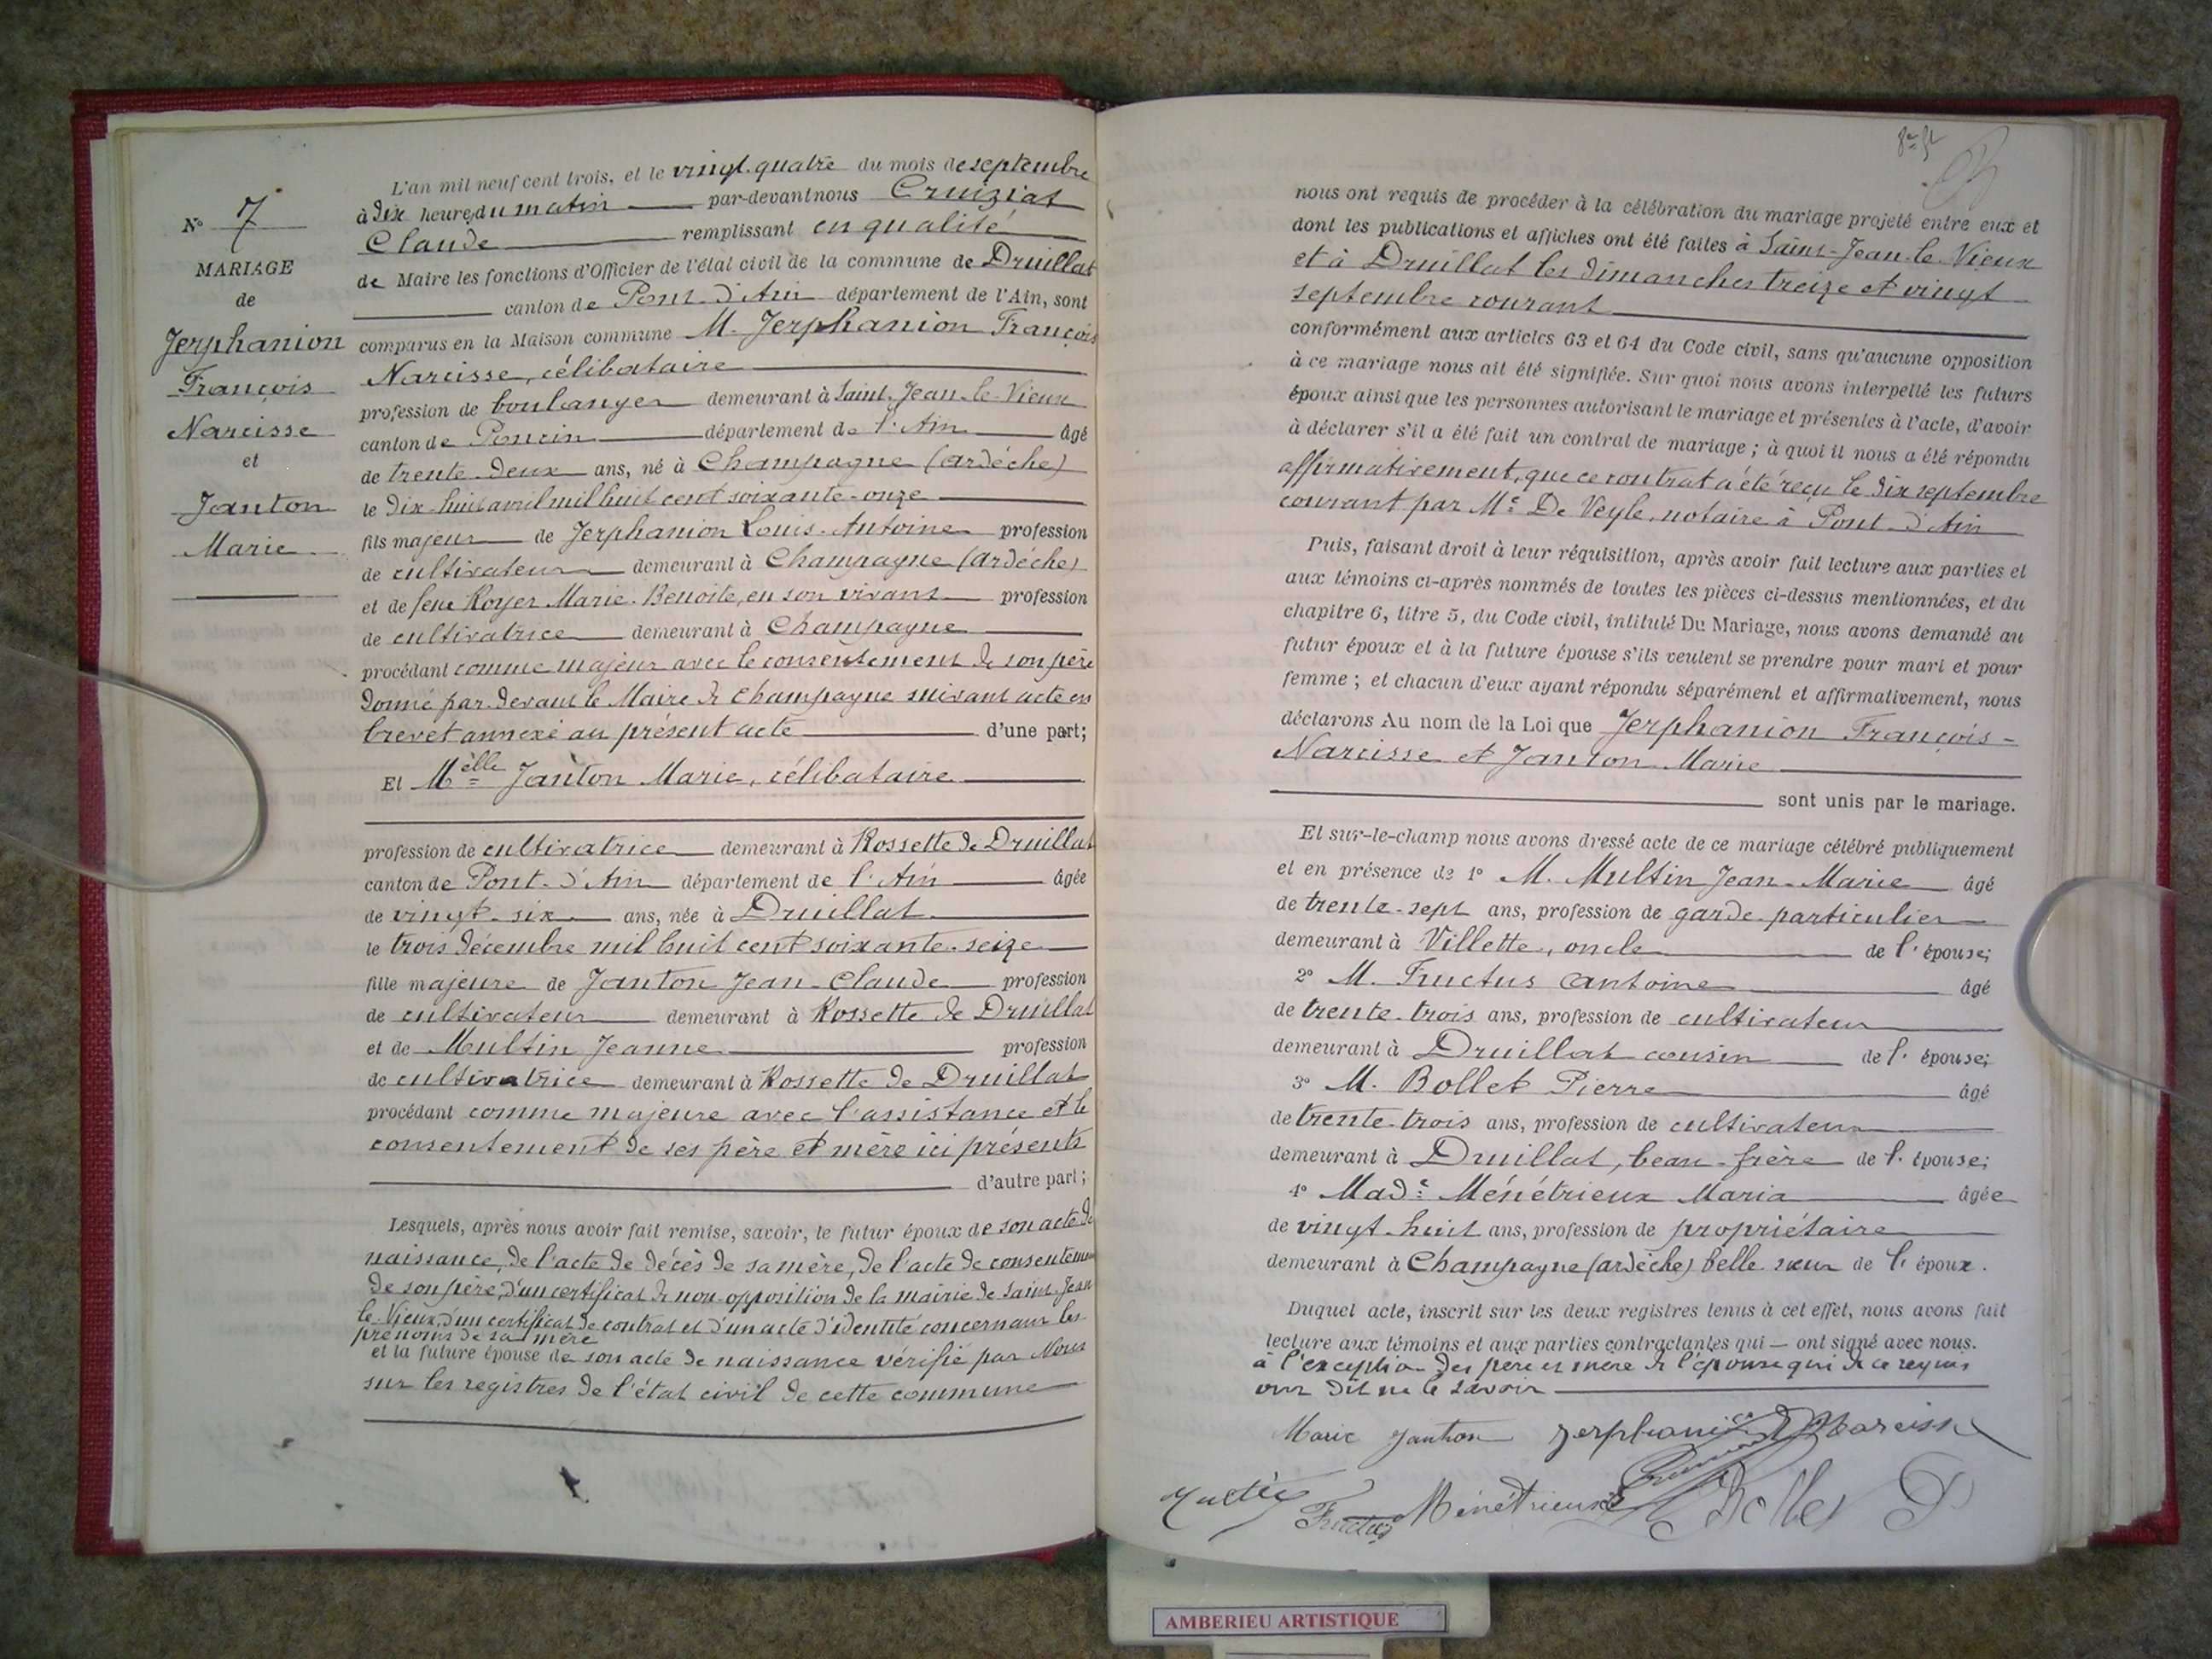 N° 7
MARIAGE
de
Jerphanion
François
Narcisse
et
Janton
Marie
L'an mil neuf cent trois, et le vingt-quatre du mois de septembre
à dix heures du matin par-devant nous Cruiziat
Claude remplissant en qualité
de Maire les fonctions d'Officier de l'état civil de la commune de Druillat
canton de Pont-d'Ain département de l'Ain, sont
comparus en la Maison commune M. Jerphanion François
Narcisse, célibataire
profession de boulanger demeurant à Saint-Jean-le-Vieux
canton de Poncin département de l'Ain âgé
de trente-deux ans, né à Champagne (ardèche)
le dix-huit avril mil huit cent soixante-onze
fils majeur de Jerphanion Louis-Antoine profession
de cultivateur demeurant à Champagne (ardèche)
et de feue Royer Marie-Benoite, en son vivant profession
de cultivatrice demeurant à Champagne
procédant comme majeur avec le consentement de son père
donné par-devant le Maire de Champagne suivant acte en
brevet annexé au présent acte d'une part;
Et Melle Janton Marie, célibataire
profession de cultivatrice demeurant à Rossette de Druillat
canton de Pont-d'Ain département de l'Ain âgée
de vingt-six ans, née à Druillat
le trois décembre mil huit cent soixante-seize
fille majeure de Janton Jean-Claude profession
de cultivateur demeurant à Rossette de Druillat
et de Multin Jeanne profession
de cultivatrice demeurant à Rossette de Druillat
procédant comme majeure avec l'assistance et le
consentement de ses père et mère ici présents
d'autre part;
Lesquels, après nous avoir fait remise, savoir, le futur époux de son acte de
naissance, de l'acte de décès de sa mère, de l'acte de consentement
de son père, d'un certificat de non-opposition de la mairie de Saint-Jean
le-Vieux, d'un certificat de contrat et d'un acte d'identité concernant les
prénoms de sa mère
et la future épouse de son acte de naissance vérifié par Nous
sur les registres de l'état civil de cette commune
nous ont requis de procéder à la célébration du mariage projeté entre eux et
dont les publications et affiches ont été faites à Saint-Jean-le-Vieux
et à Druillat les dimanches treize et vingt
septembre courant
conformément aux articles 63 et 64 du Code civil, sans qu'aucune opposition
à ce mariage nous ait été signifiée. Sur quoi nous avons interpellé les futurs
époux ainsi que les personnes autorisant le mariage et présentes à l'acte, d'avoir
à déclarer s'il a été fait un contrat de mariage ; à quoi il nous a été répondu
affirmativement, que ce contrat a été reçu le dix septembre
courant par Me De Veyle, notaire à Pont-d'Ain
Puis, faisant droit à leur réquisition, après avoir fait lecture aux parties et
aux témoins ci-après nommés de toutes les pièces ci-dessus mentionnées, et du
chapitre 6, titre 5, du Code civil, intitulé Du Mariage, nous avons demandé au
futur époux et à la future épouse s'ils veulent se prendre pour mari et pour
femme ; et chacun d'eux ayant répondu séparément et affirmativement, nous
déclarons Au nom de la Loi que Jerphanion François-
Narcisse et Janton Marie
sont unis par le mariage.
Et sur-le-champ nous avons dressé acte de ce mariage célébré publiquement
et en présence de 1° M. Multin Jean-Marie âgé
de trente-sept ans, profession de garde-particulier
demeurant à Villette, oncle de l'épouse;
2° M. Fructus Antoine âgé
de trente-trois ans, profession de cultivateur
demeurant à Druillat cousin de l'épouse;
3° M. Bollet Pierre âgé
de trente-trois ans, profession de cultivateur
demeurant à Druillat, beau-frère de l'épouse;
4° Made Ménétrieux Maria âgée
de vingt-huit ans, profession de propriétaire
demeurant à Champagne (ardèche) belle-sœur de l'époux.
Duquel acte, inscrit sur les deux registres tenus à cet effet, nous avons fait
lecture aux témoins et aux parties contractantes qui — ont signé avec nous.
à l'exception des père et mère de l'épouse qui de ce requis
ont dit ne le savoir
Marie Janton Jerphanion Narcisse
Fructus Ménétrieux Bollet P
AMBERIEU ARTISTIQUE